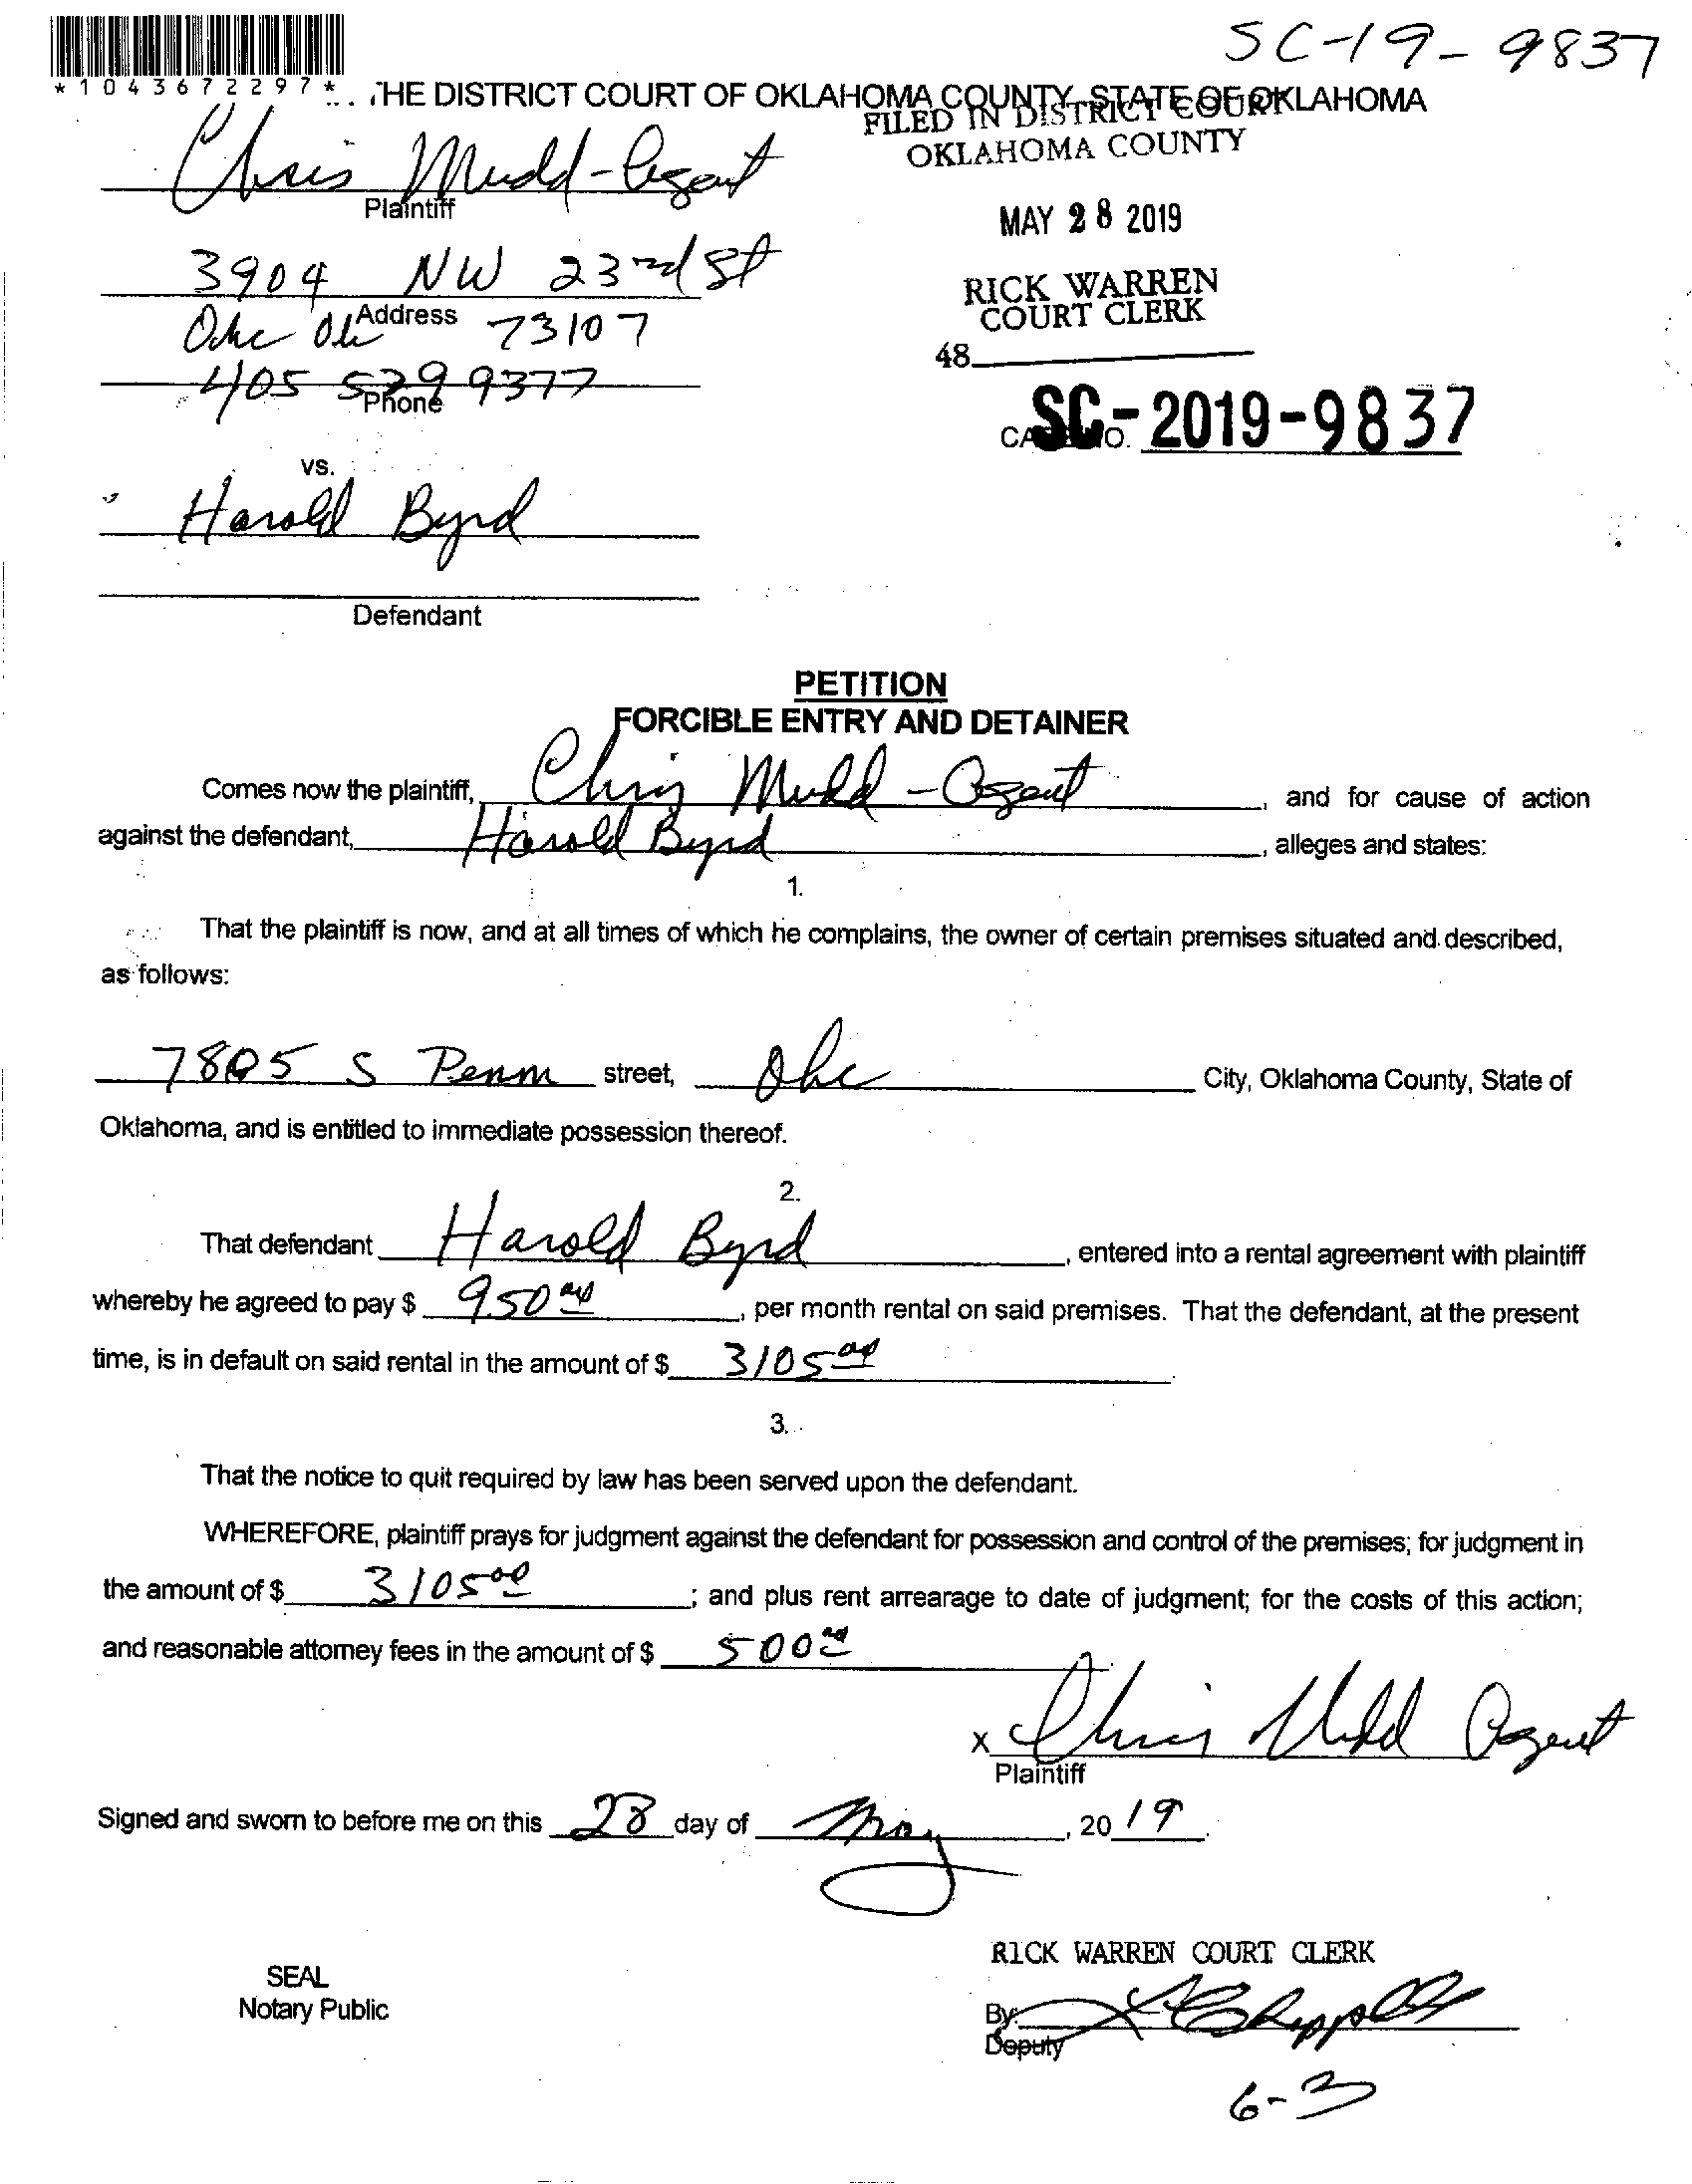 SC-19-9837
*1043672297*
THE DISTRICT COURT OF OKLAHOMA COUNTY, STATE OF OKLAHOMA
FILED IN DISTRICT COURT
OKLAHOMA COUNTY
Chris Mudd-Agent
Plaintiff
MAY 28 2019
3904 NW 23rd St
Address
RICK WARREN
COURT CLERK
Okc Ok 73107
48
405 529 9377
Phone
CASE NO. SC-2019-9837
vs.
Harold Byrd
Defendant
PETITION
FORCIBLE ENTRY AND DETAINER
Comes now the plaintiff, Chris Mudd - Agent, and for cause of action
against the defendant, Harold Byrd, alleges and states:
1.
That the plaintiff is now, and at all times of which he complains, the owner of certain premises situated and described,
as follows:
7805 S Penn street, Okc City, Oklahoma County, State of
Oklahoma, and is entitled to immediate possession thereof.
2.
That defendant Harold Byrd, entered into a rental agreement with plaintiff
whereby he agreed to pay $ 950 00, per month rental on said premises. That the defendant, at the present
time, is in default on said rental in the amount of $ 3105 00
3.
That the notice to quit required by law has been served upon the defendant.
WHEREFORE, plaintiff prays for judgment against the defendant for possession and control of the premises; for judgment in
the amount of $ 3105 00; and plus rent arrearage to date of judgment; for the costs of this action;
and reasonable attorney fees in the amount of $ 500 00
x Chris Mudd Agent
Plaintiff
Signed and sworn to before me on this 28 day of May, 2019.
RICK WARREN COURT CLERK
SEAL
Notary Public
By:
Deputy
6-3